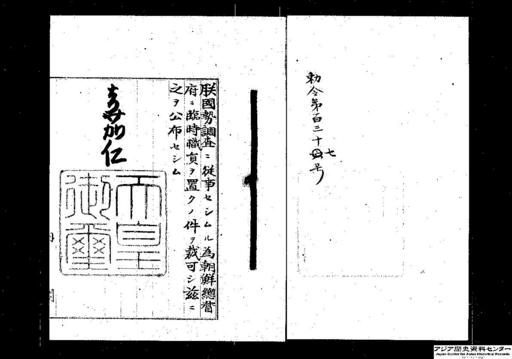 勅令第百三十七号
朕國勢調査ニ從事セシムル為朝鮮總督
府ニ臨時職員ヲ置クノ件ヲ裁可シ茲ニ
之ヲ公布セシム
嘉仁
天皇
御璽
アジア歴史資料センター
Japan Center for Asian Historical Records